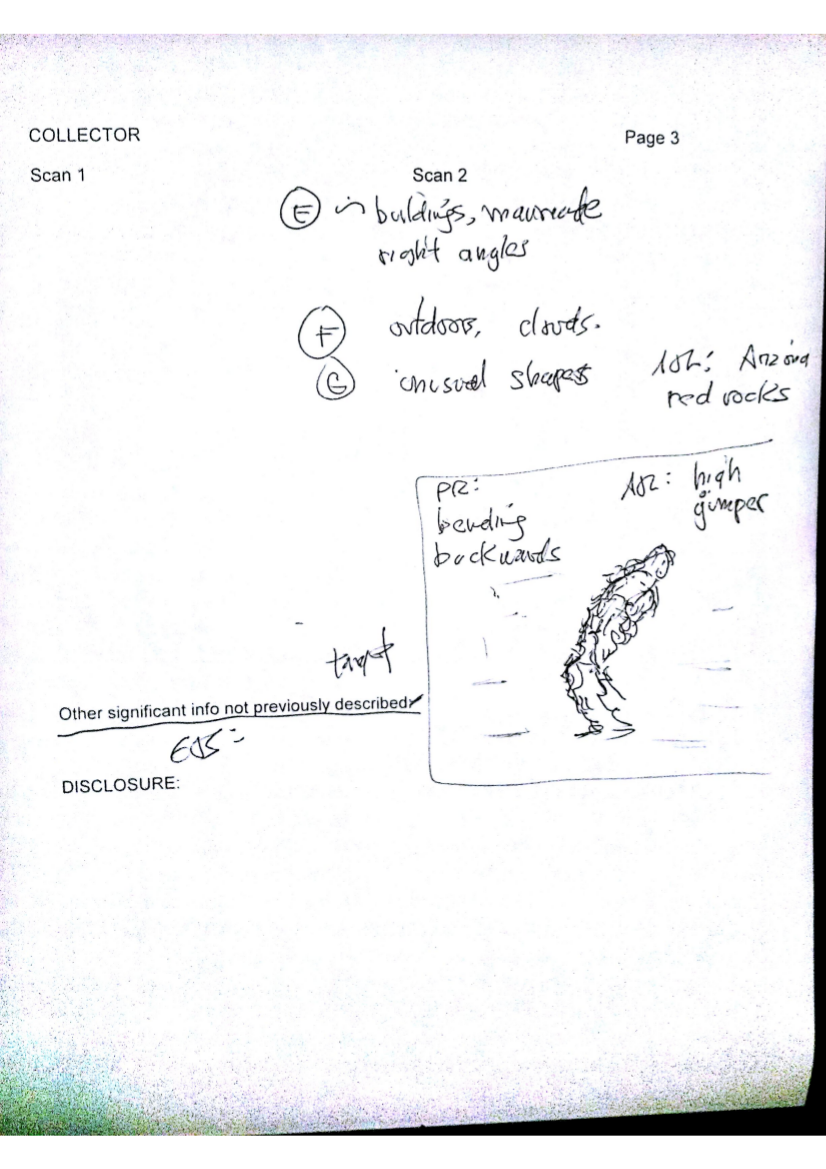 COLLECTOR
Page 3
Scan 1
Scan 2
E buildings, manmade
right angles
F outdoors, clouds.
G unusual shapes
Arizona
red rocks
PR:
bending
backwards
high
target
Other significant info not previously described
DISCLOSURE: